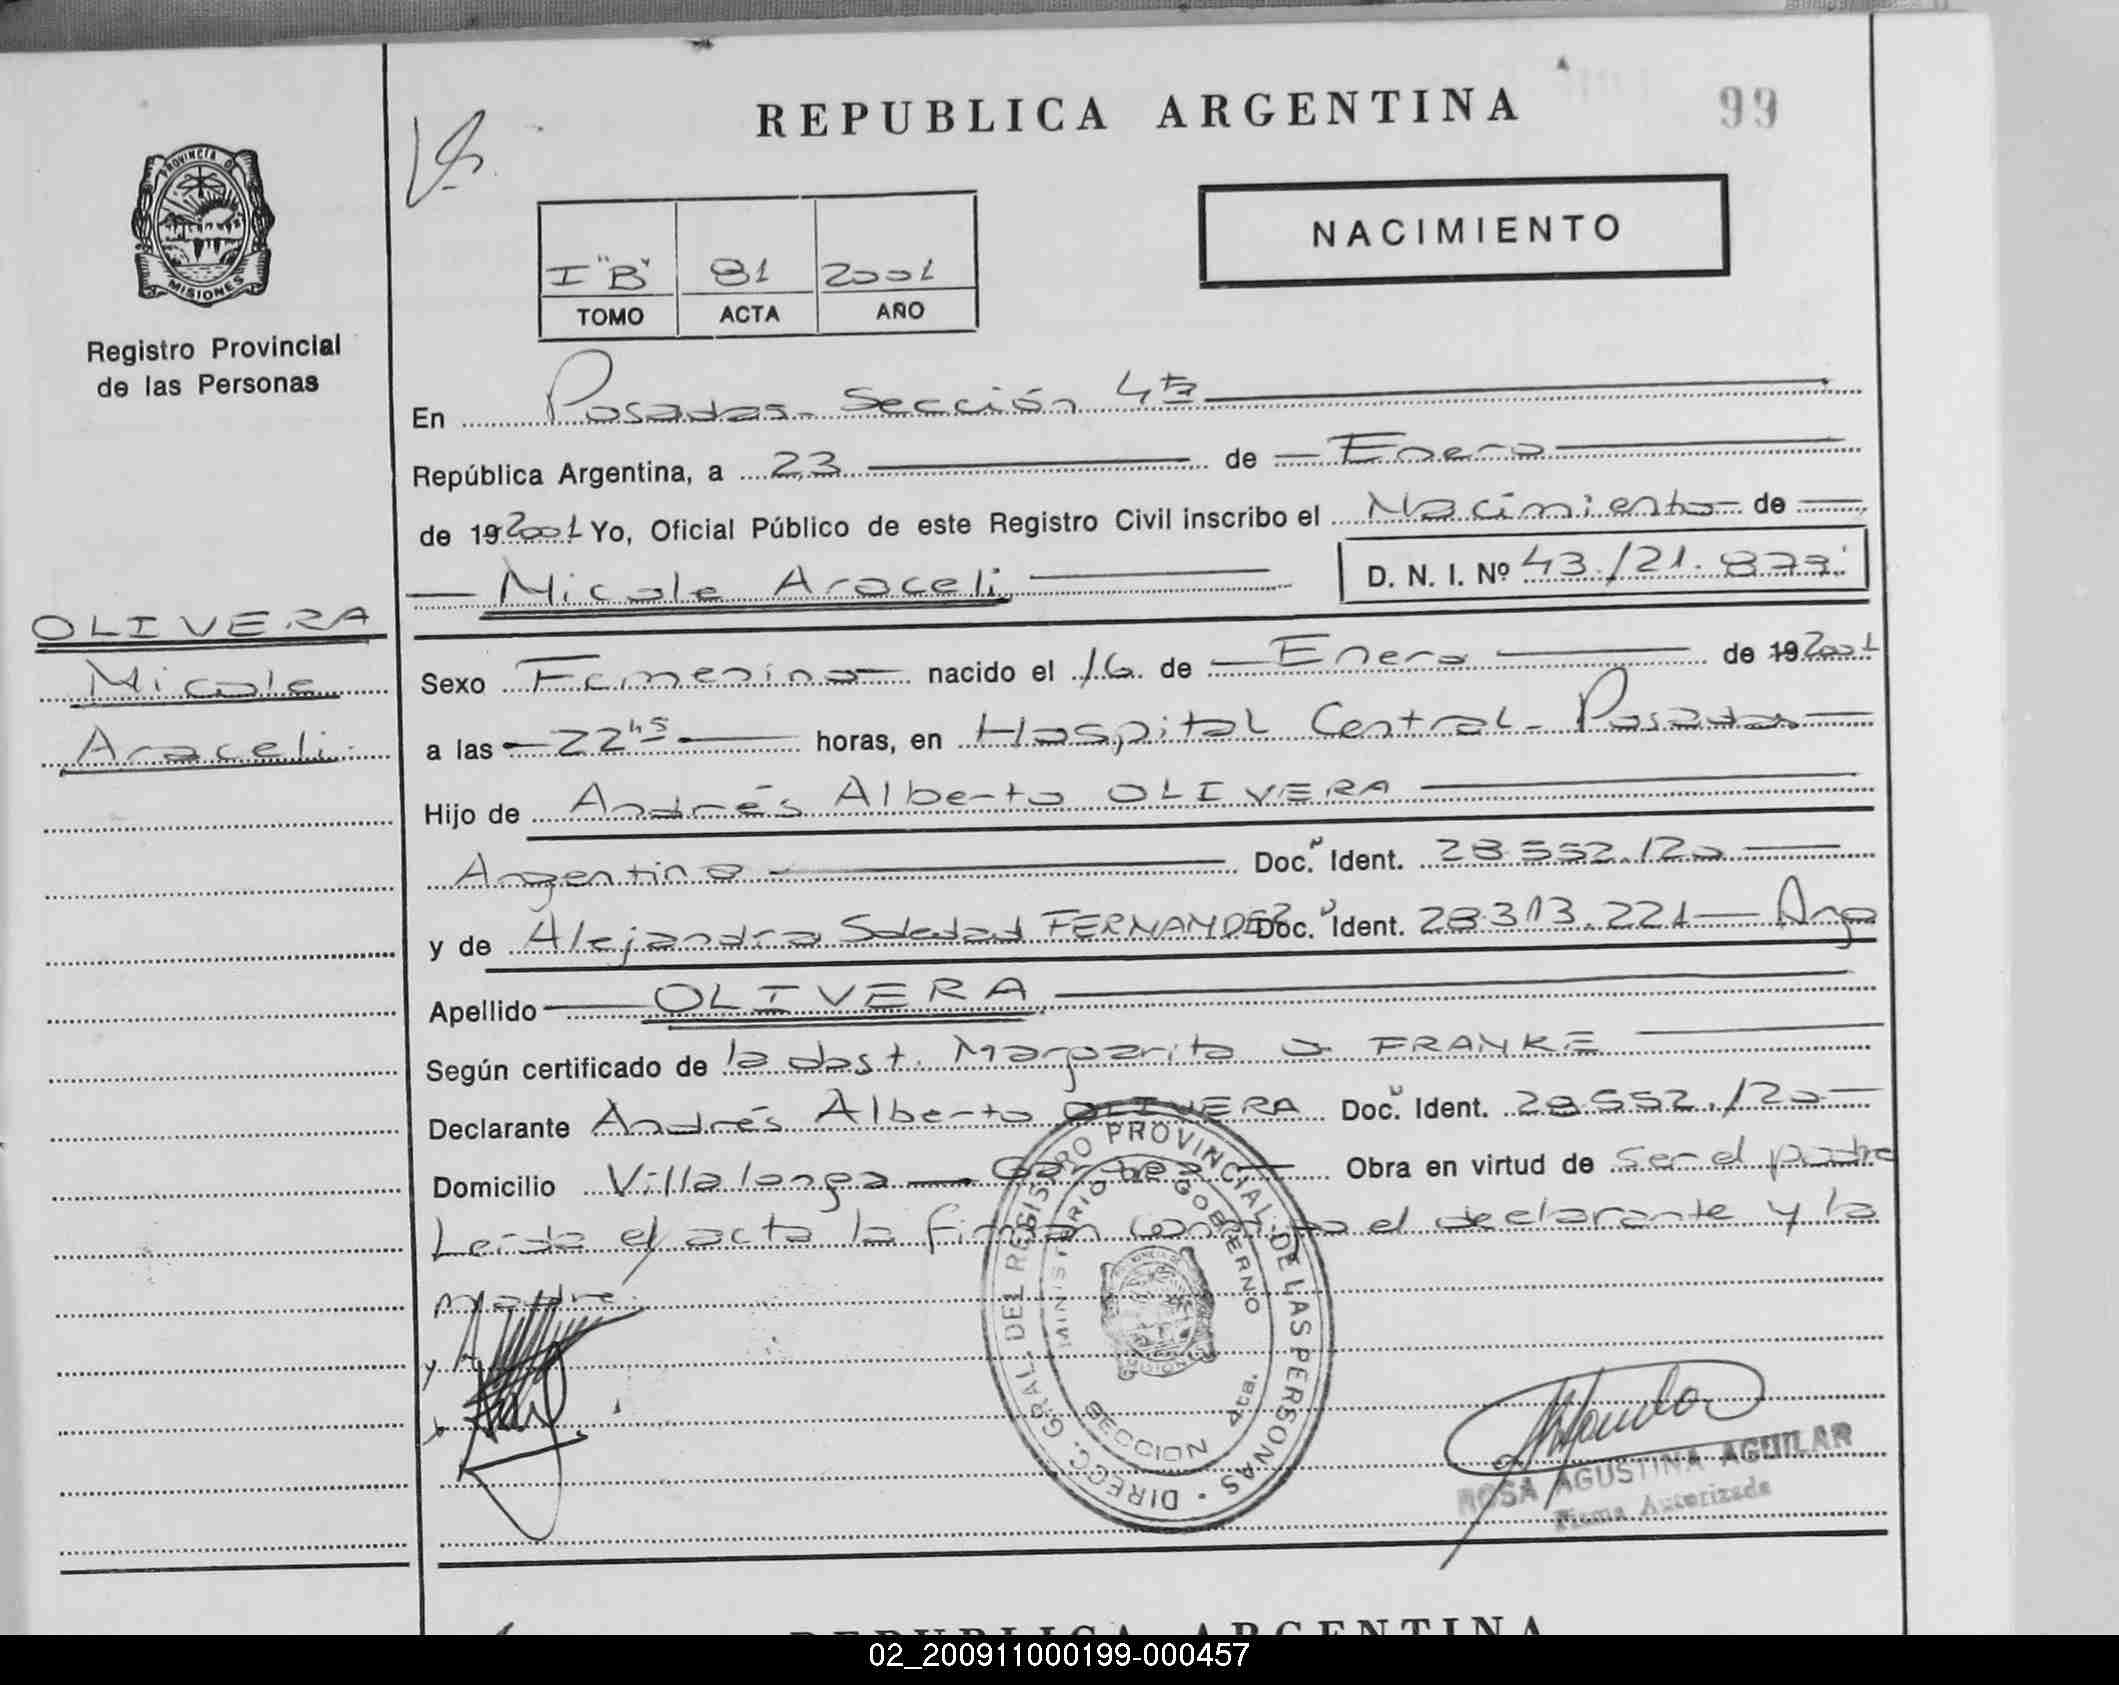 REPUBLICA ARGENTINA
99
PROVINCIA DE
MISIONES
Registro Provincial
de las Personas
NACIMIENTO
I "B" 81 2001
TOMO ACTA AÑO
En Posadas - Sección 4ta
República Argentina, a 23 de Enero
de 19 2001 Yo, Oficial Público de este Registro Civil inscribo el Nacimiento de
Micole Araceli D. N. I. Nº 43.121.873
OLIVERA
Micole
Araceli
Sexo Femenino nacido el 16 de Enero de 19 2001
a las 22 45 horas, en Hospital Central - Posadas
Hijo de Andrés Alberto OLIVERA
Argentino Doc. Ident. 28.552.120
y de Alejandra Soledad FERNANDEZ Doc. Ident. 28.313.221 Arg
Apellido OLIVERA
Según certificado de la obst. Margarita FRANKE
Declarante Andrés Alberto OLIVERA Doc. Ident. 28.552.120
Domicilio Villalonga - Garupá Obra en virtud de ser el padre
Leída el acta la firman conmigo el declarante y la
madre.
DIRECC. GRAL. DEL REGISTRO PROVINCIAL DE LAS PERSONAS
MINISTERIO DE GOBERNO
SECCION 4ta.
MISIONES
ROSA AGUSTINA AGUILAR
Firma Autorizada
REPUBLICA ARGENTINA
02_200911000199-000457